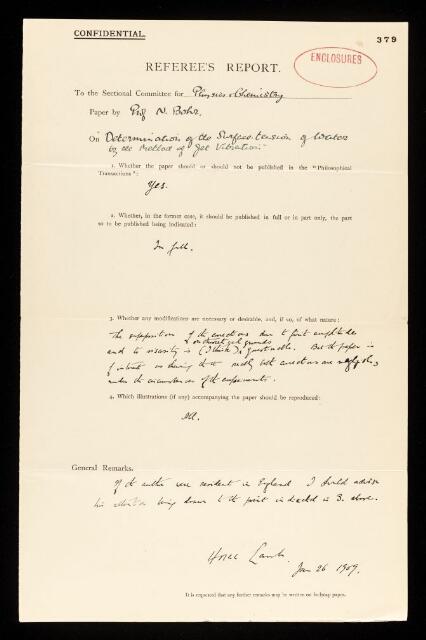 CONFIDENTIAL.
379
ENCLOSURES
REFEREE'S REPORT.
To the Sectional Committee for Physics & Chemistry
Paper by Prof N. Bohr,
On "Determination of the Surface tension of Water
by the Method of Jet Vibration"
1. Whether the paper should or should not be published in the "Philosophical
Transactions":
Yes.
2. Whether, in the former case, it should be published in full or in part only, the part
so to be published being indicated:
In full.
3. Whether any modifications are necessary or desirable, and, if so, of what nature:
The superposition of the corrections due to finite amplitudes
on theoretical grounds
and to viscosity is (I think) questionable. But the paper is
of interest as showing that really both corrections are negligible,
under the circumstances of the experiments.
4. Which illustrations (if any) accompanying the paper should be reproduced:
All.
General Remarks.
If the author were resident in England I should advise
his attention being drawn to the point included in 3. above.
Horace Lamb.
Jan 26 1909.
It is requested that any further remarks may be written on foolscap paper.